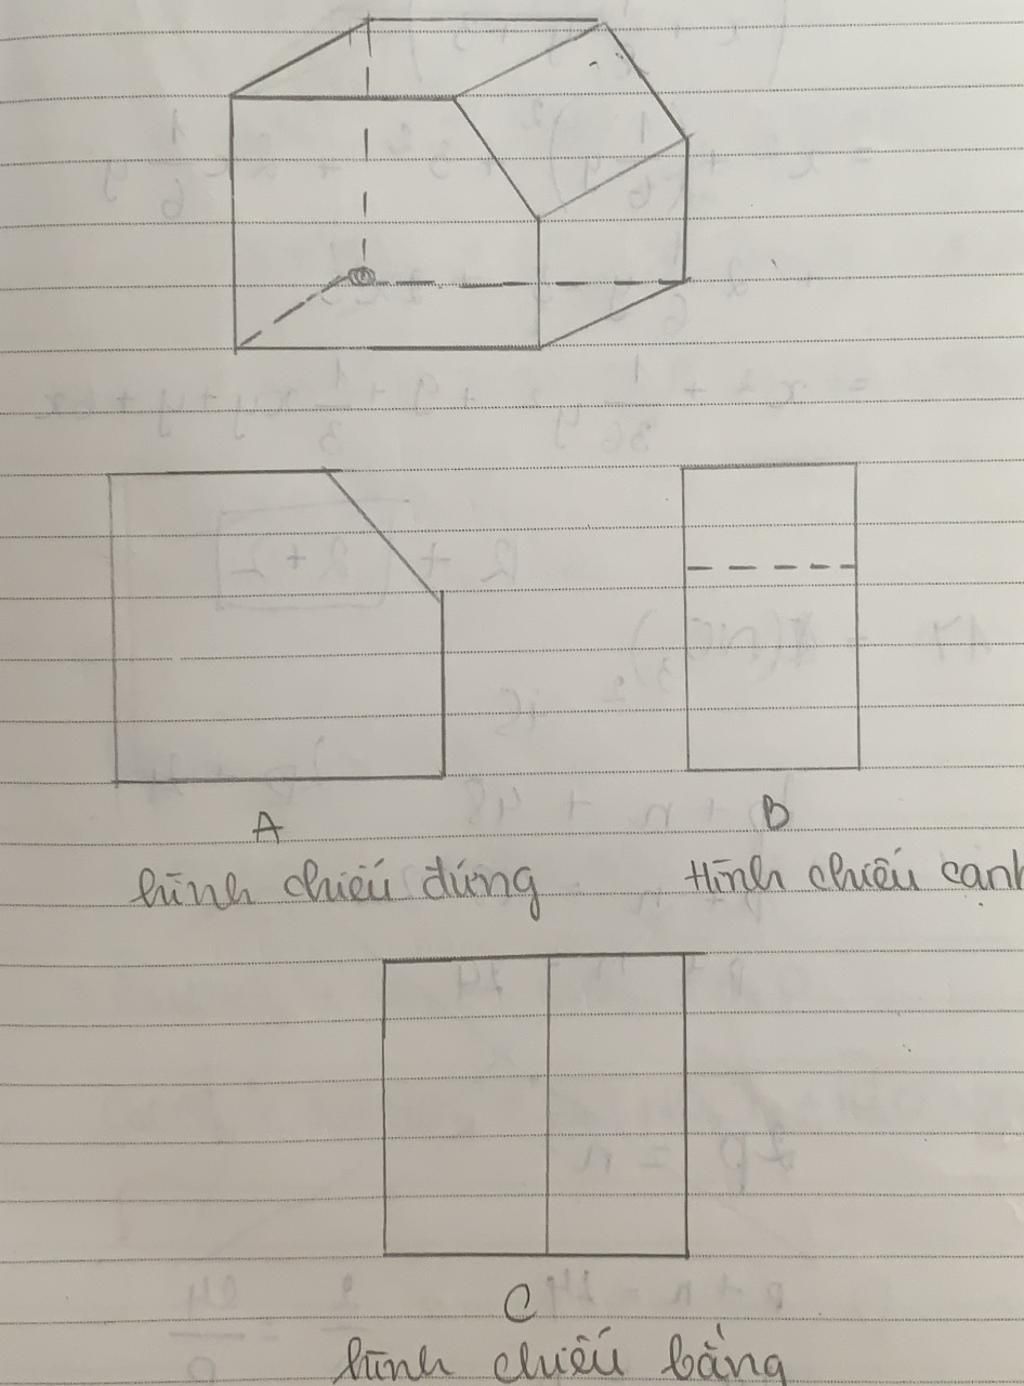 A
B
hình chiếu đứng
Hình chiếu cạnh
C
hình chiếu bằng